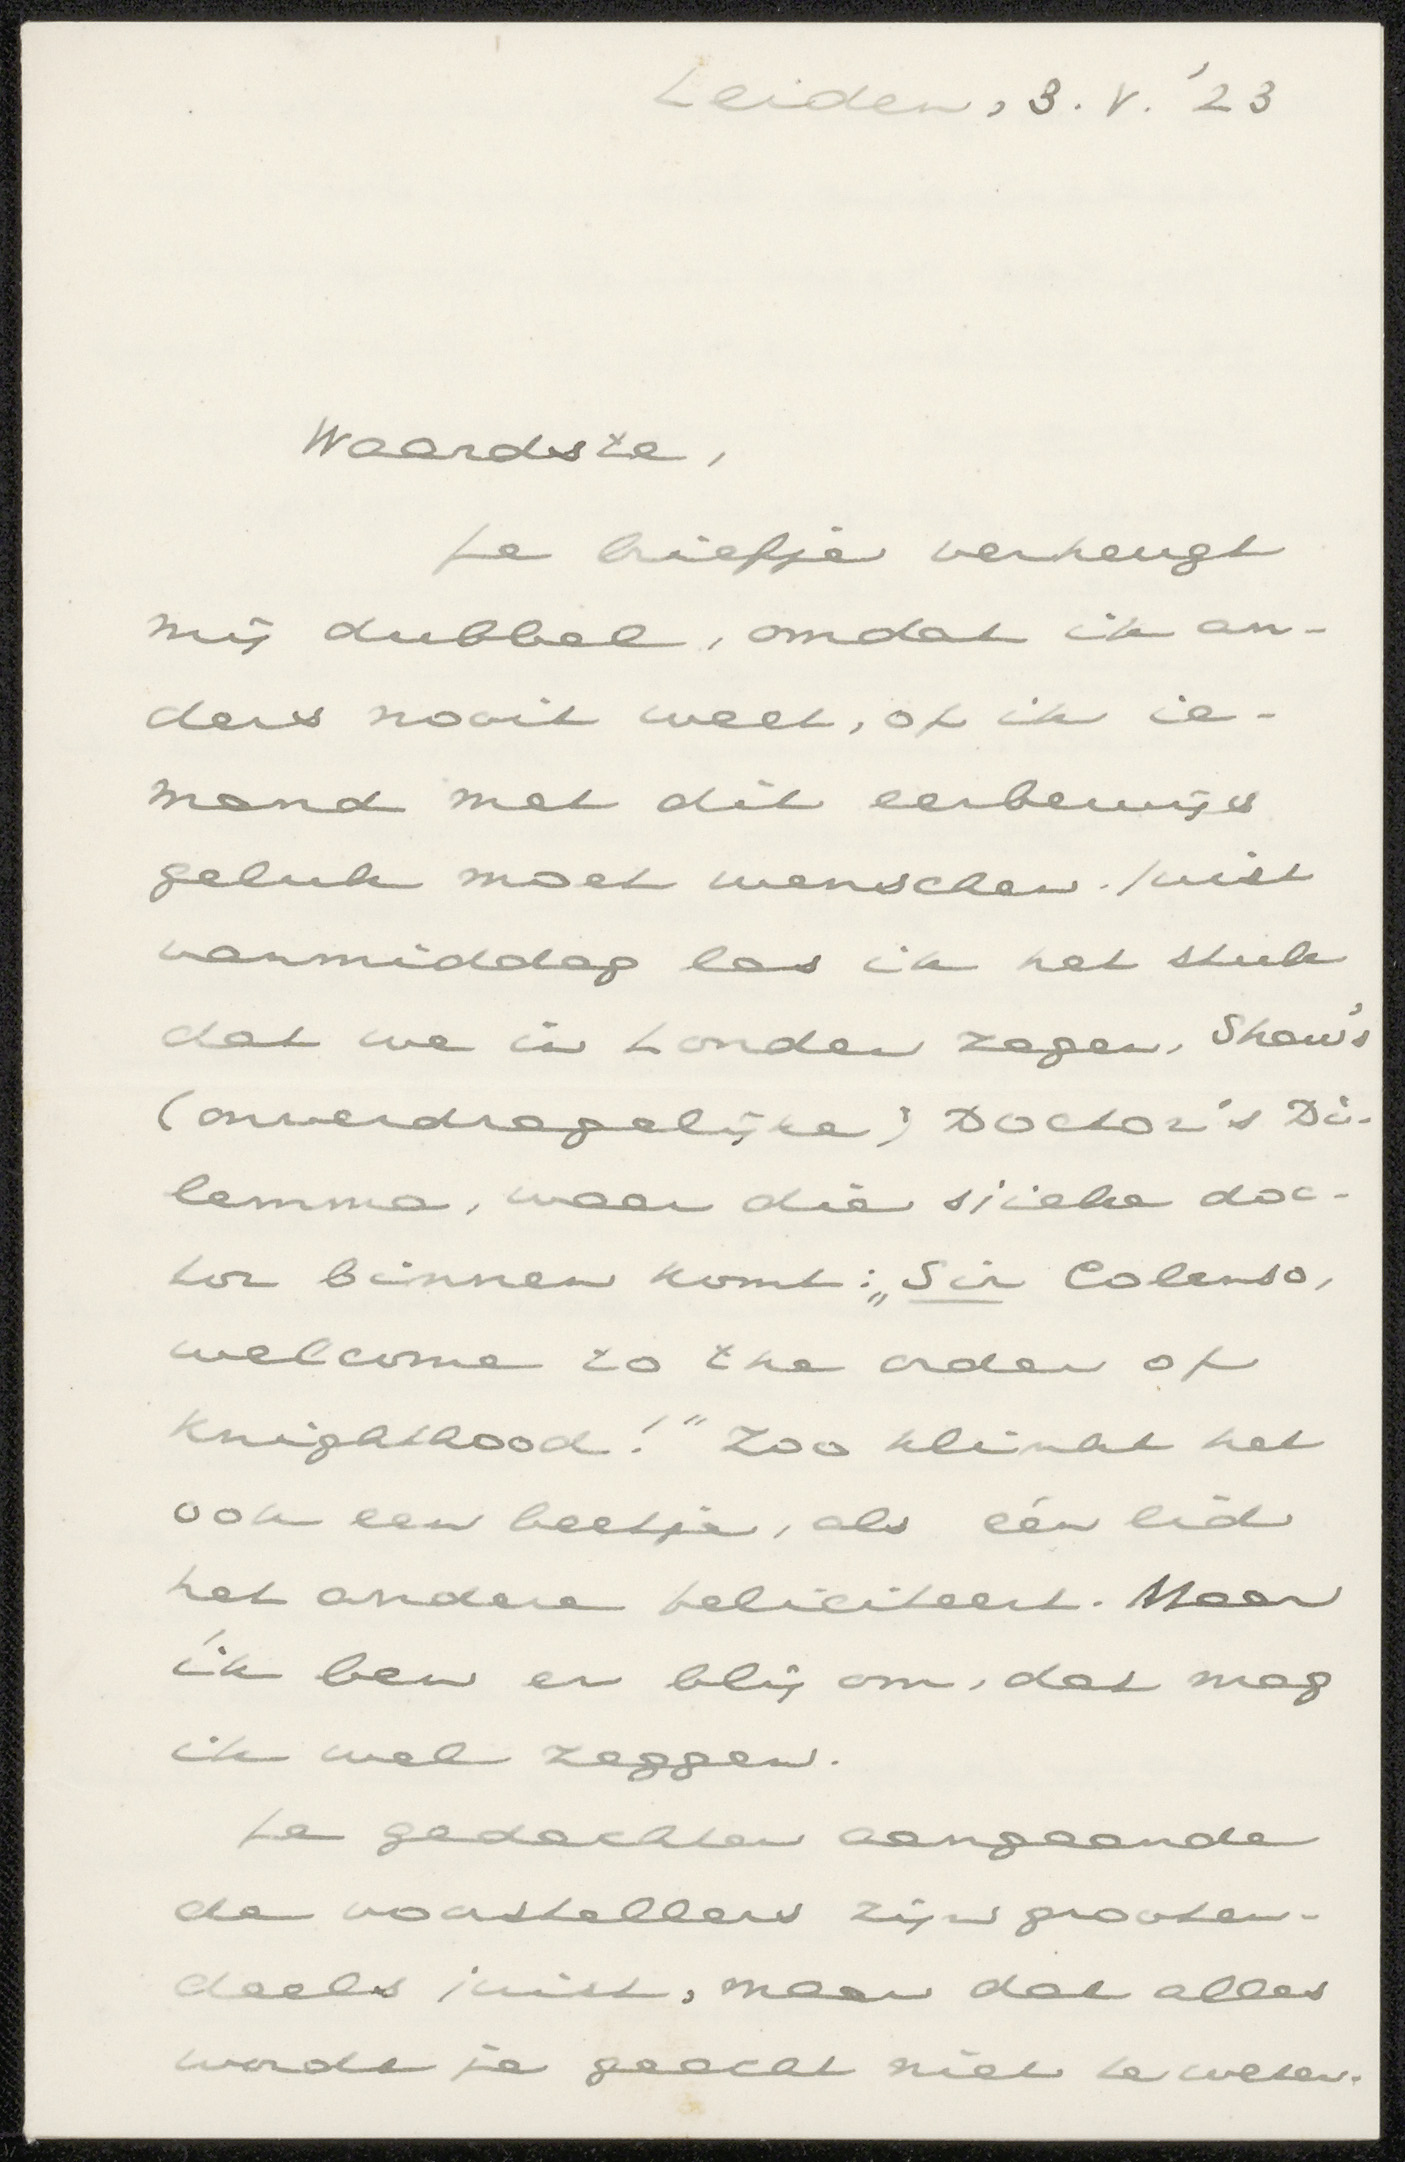 Leiden, 3.V.'23
Waardste,
Je briefje verheugt
mij dubbel, omdat ik an-
ders nooit weet, of ik ie-
mand met dit eerbewijs
geluk moet wenschen. Juist
vanmiddag las ik het stuk
dat we in Londen zagen, Shaw's
(onverdragelijke) Doctor's Di-
lemma, waar die sjieke doc-
tor binnen komt: „Sir Colenso,
welcome to the order of
knighthood!" Zoo klinkt het
ook een beetje, als één lid
het andere feliciteert. Maar
ík ben er blij om, dat mag
ik wel zeggen.
Je gedachten aangaande
de voorstellers zijn grooten-
deels juist, maar dat alles
wordt je geacht niet te weten.